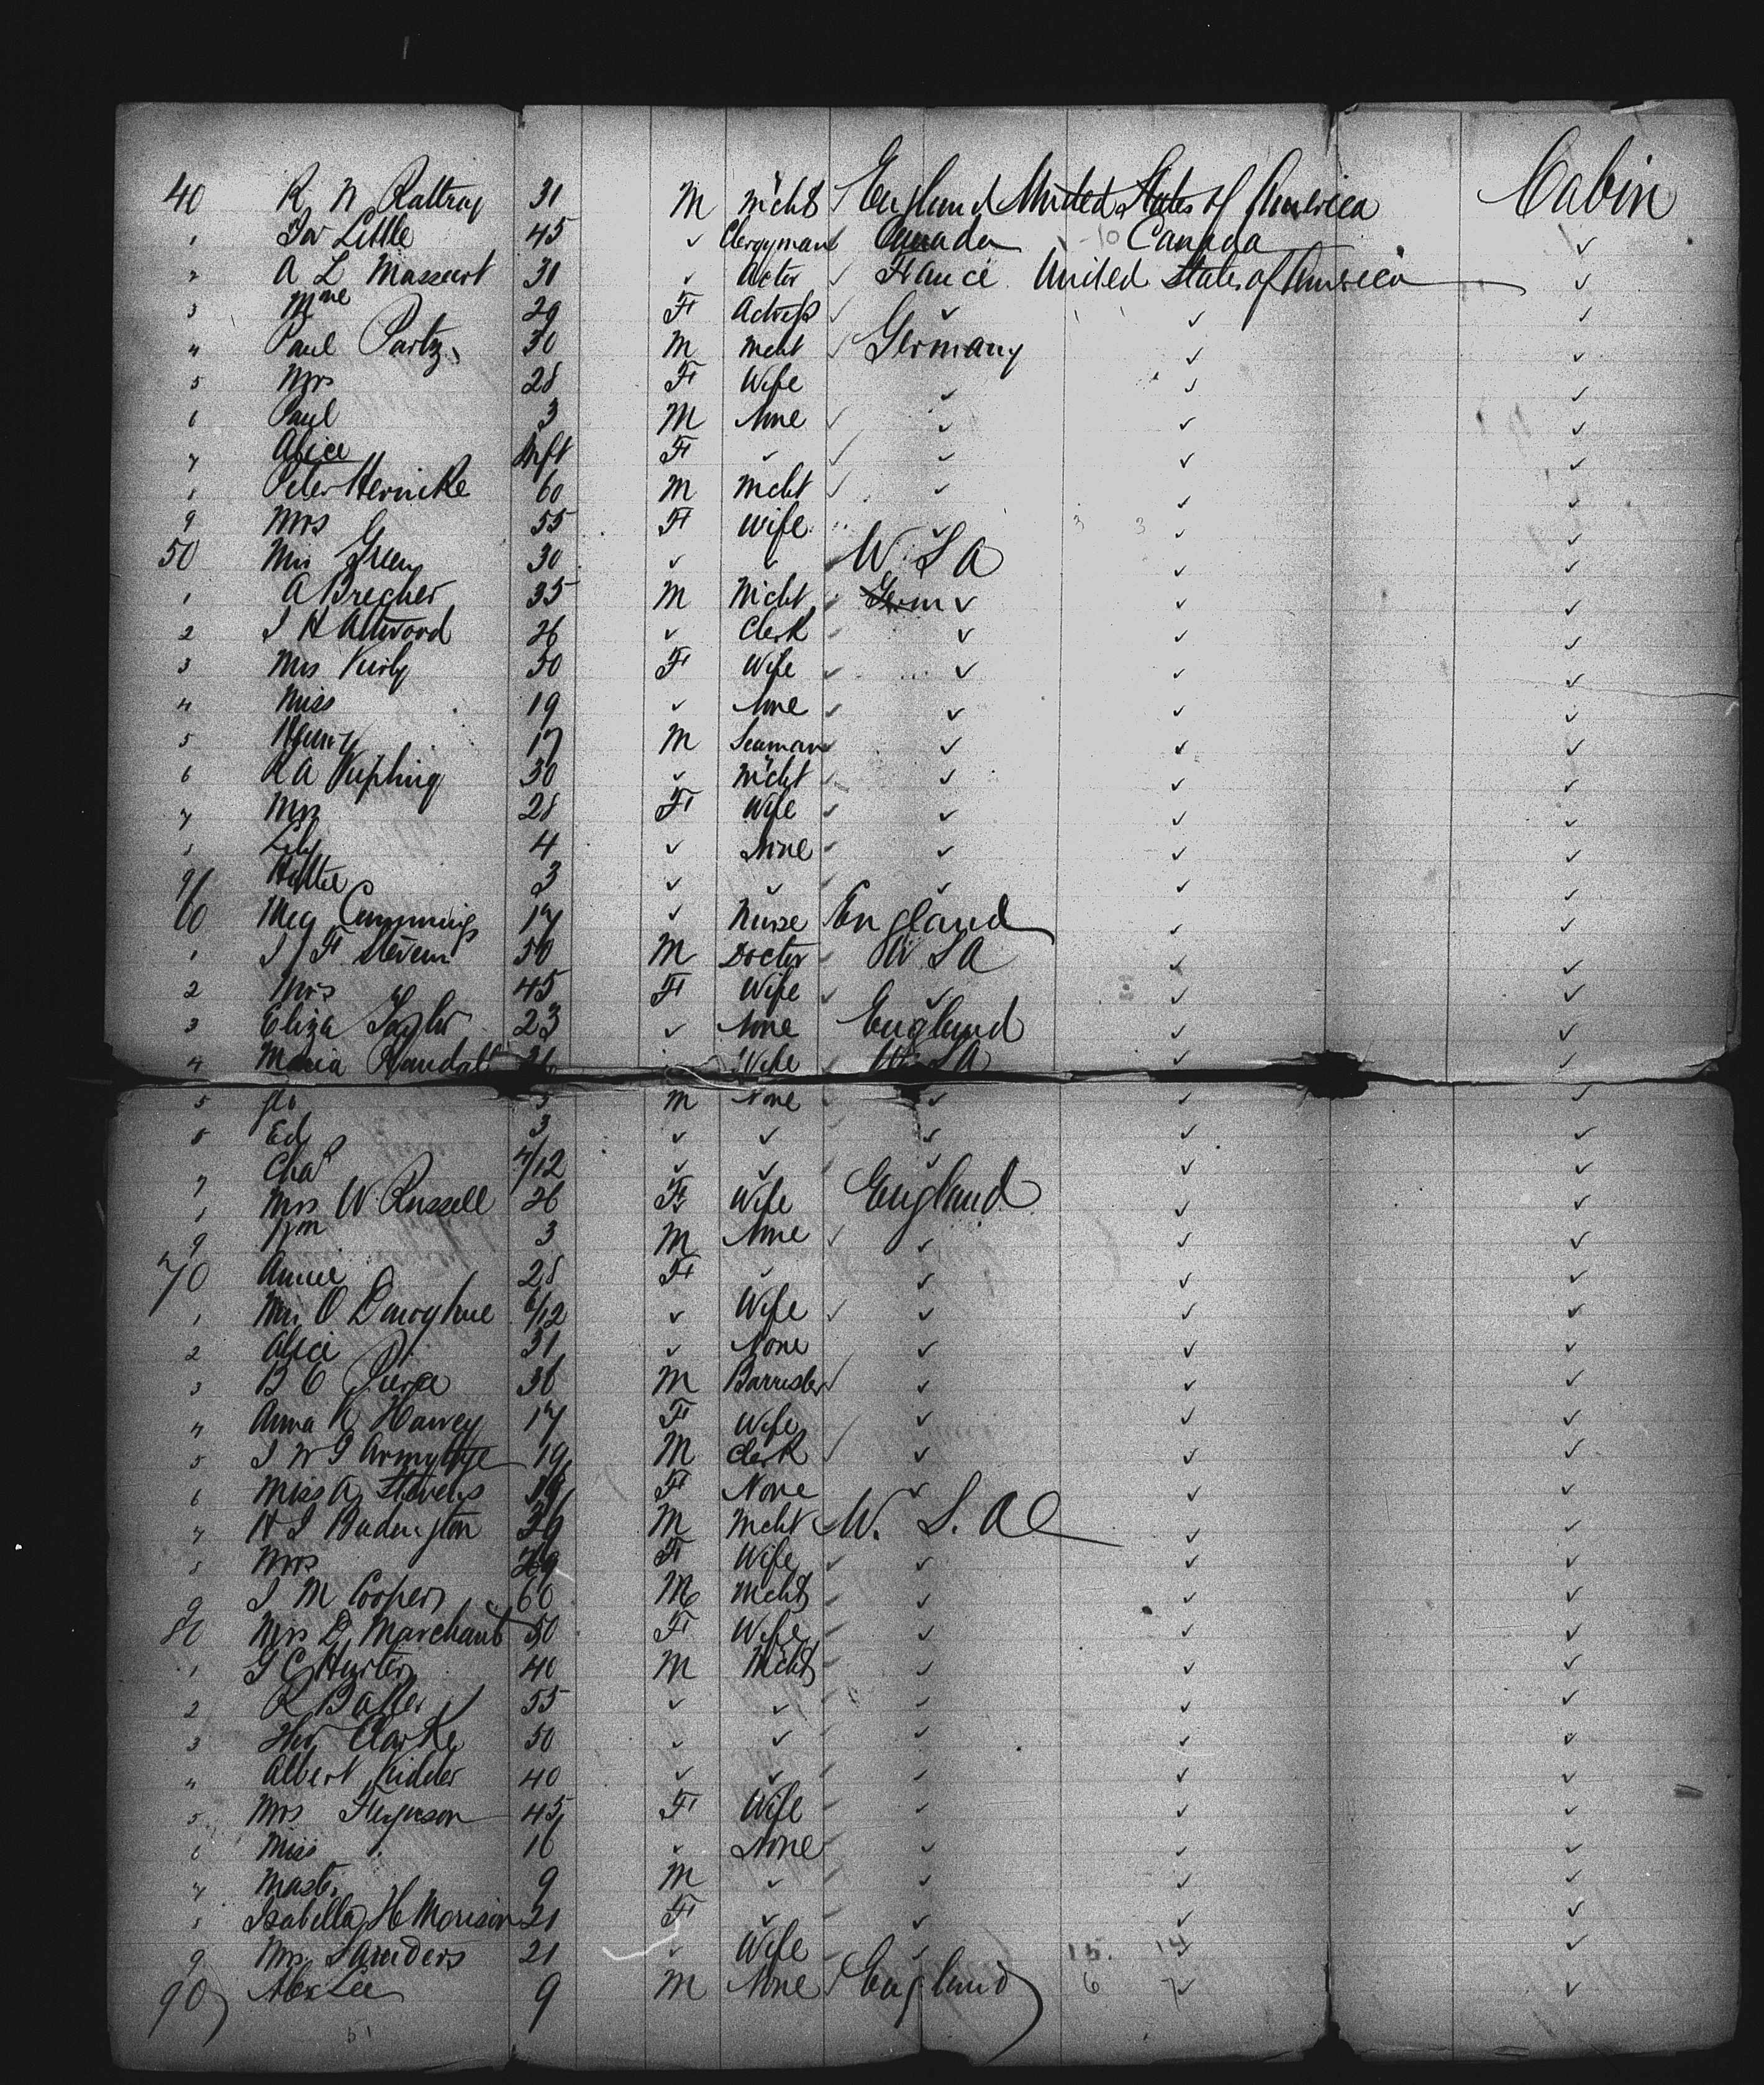 Cabin
40 R N Rattray 31 M Mcht England United States of America
1 Jas Little 45 ✓ Clergyman Canada Canada ✓
2 A L Massart 31 ✓ Actor ✓ France United States of America ✓
3 Mme 29 F Actress ✓ ✓ ✓ ✓
4 Paul Partz 30 M Mcht ✓ Germany ✓ ✓
5 Mrs 28 F Wife ✓ ✓ ✓
6 Paul 3 M None ✓ ✓ ✓ ✓
7 Alice Inft F ✓ ✓ ✓ ✓ ✓
8 Peter Hernicke 60 M Mcht ✓ ✓ ✓ ✓
9 Mrs 55 F Wife ✓ ✓ ✓
50 Mrs Green 30 ✓ ✓ U S A ✓ ✓
1 A Brecher 35 M Mcht Germ ✓ ✓ ✓
2 J H Attwood 26 ✓ Clerk ✓ ✓ ✓
3 Mrs Kirby 50 F Wife ✓ ✓ ✓ ✓
4 Miss 19 ✓ None ✓ ✓ ✓ ✓
5 Henry 17 M Seaman ✓ ✓ ✓ ✓
6 R A Kipling 30 ✓ Mcht ✓ ✓ ✓
7 Mrs 28 F Wife ✓ ✓ ✓ ✓
8 Lily 4 ✓ None ✓ ✓ ✓
9 Hattie 3 ✓ ✓ ✓ ✓ ✓
60 Meg Cummings 17 ✓ Nurse England ✓ ✓
1 J F Stevens 50 M Doctor U S A ✓ ✓
2 Mrs 45 F Wife ✓ ✓ ✓ ✓
3 Eliza Taylor 23 ✓ None England ✓ ✓
4 Maria Randall Wife U S A ✓ ✓
5 Geo M None ✓ ✓ ✓ ✓
6 Ed 3 ✓ ✓ ✓ ✓ ✓
7 Chas 7/12 ✓ ✓ ✓ ✓ ✓
8 Mrs W Russell 26 F Wife England ✓ ✓
9 Wm 3 M None ✓ ✓ ✓ ✓
70 Annie 28 F ✓ ✓ ✓ ✓
1 Mrs O Donoghue 6/12 ✓ Wife ✓ ✓ ✓ ✓
2 Alice 31 ✓ None ✓ ✓ ✓
3 B C Pierce 36 M Barrister ✓ ✓ ✓ ✓
4 Anna K Harvey 17 F Wife ✓ ✓ ✓ ✓
5 J W G Armytage 19 M Clerk ✓ ✓ ✓ ✓
6 Miss A Stevens 19 F None ✓ ✓
7 H J Budington 36 M Mcht U. S. A ✓ ✓
8 Mrs F Wife ✓ ✓ ✓ ✓
9 J M Cooper 60 M Mcht ✓ ✓ ✓ ✓
80 Mrs D Marchant 50 F Wife ✓ ✓ ✓ ✓
1 G C Hurter 40 M Mcht ✓ ✓ ✓ ✓
2 R Baker 55 ✓ ✓ ✓ ✓ ✓
3 Clarke 50 ✓ ✓ ✓ ✓ ✓
4 Albert Kidder 40 ✓ ✓ ✓ ✓ ✓
5 Mrs Ferguson 45 F Wife ✓ ✓ ✓ ✓
6 Miss 16 ✓ None ✓ ✓ ✓
7 Master 9 M ✓ ✓ ✓ ✓
8 Isabella H Morison 21 F ✓ ✓ ✓ ✓ ✓
9 Mrs Saunders 21 ✓ Wife ✓ ✓ 15. 14 ✓ ✓
90 Alex Lee 9 M None ✓ England 6 7 ✓ ✓
51